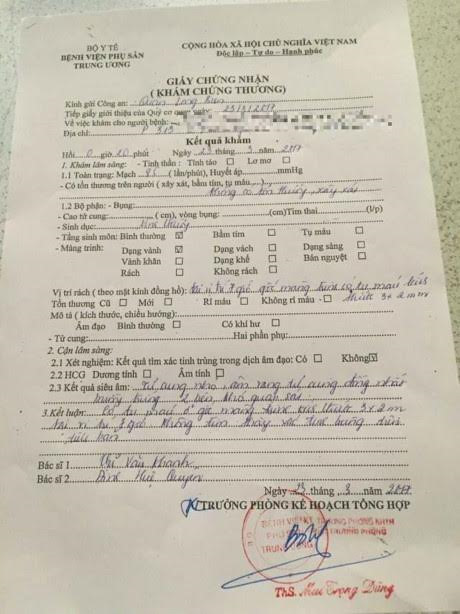 BỘ Y TẾ
BỆNH VIỆN PHỤ SẢN
TRUNG ƯƠNG
CỘNG HÒA XÃ HỘI CHỦ NGHĨA VIỆT NAM
Độc lập - Tự do - Hạnh phúc
GIẤY CHỨNG NHẬN
( KHÁM CHỨNG THƯƠNG)
Kính gửi Công an: Quận Long Biên
Tiếp giấy giới thiệu của Quý cơ quan ngày 23/3/2017
Về việc khám cho người bệnh:
Địa chỉ: P 313
Kết quả khám
Hồi 0 giờ 20 phút Ngày 23 tháng 3 năm 2017
1. Khám lâm sàng: - Tinh thần: Tỉnh táo Lơ mơ
1.1 Toàn trạng: Mạch (lần/phút), Huyết áp mmHg
- Có tổn thương trên người ( xây xát, bầm tím, tụ máu )
không có bầm tím, xây xát
1.2 Bộ phận: - Bụng:
- Cao tử cung: ( cm), vòng bụng: (cm)Tim thai (l/p)
- Sinh dục:
- Tầng sinh môn: Bình thường Bầm tím Tụ máu
- Màng trinh: Dạng vành Dạng vách Dạng sàng
Vành khăn Dạng khế Bán nguyệt
Rách Không rách
Vị trí rách ( theo mặt kính đồng hồ): tại vị trí 3 giờ gốc màng trinh có tụ máu kích
thước 3x2mm
Tổn thương Cũ Mới Rỉ máu Không rỉ máu
Mô tả ( kích thước, chiều hướng):
Âm đạo Bình thường Có khí hư
- Tử cung: Hai phần phụ:
2. Cận lâm sàng:
2.1 Xét nghiệm: Kết quả tìm xác tinh trùng trong dịch âm đạo: Có Không
2.2 HCG Dương tính Âm tính
2.3 Kết quả siêu âm: Tử cung âm vang tử cung đồng nhất
buồng trứng 2 bên khó quan sát
3.Kết luận: Có tụ máu ở gốc màng trinh kích thước 3x2m
tại vị trí 3 giờ không tìm thấy xác tinh trùng trên
tiêu bản
Bác sĩ 1 Vũ Văn Khanh
Bác sĩ 2 Đinh Huệ Quyên
Ngày 23 tháng 3 năm 2017
TRƯỞNG PHÒNG KẾ HOẠCH TỔNG HỢP
BỆNH VIỆN
TRUNG ƯƠNG
ThS. Mai Trọng Dũng